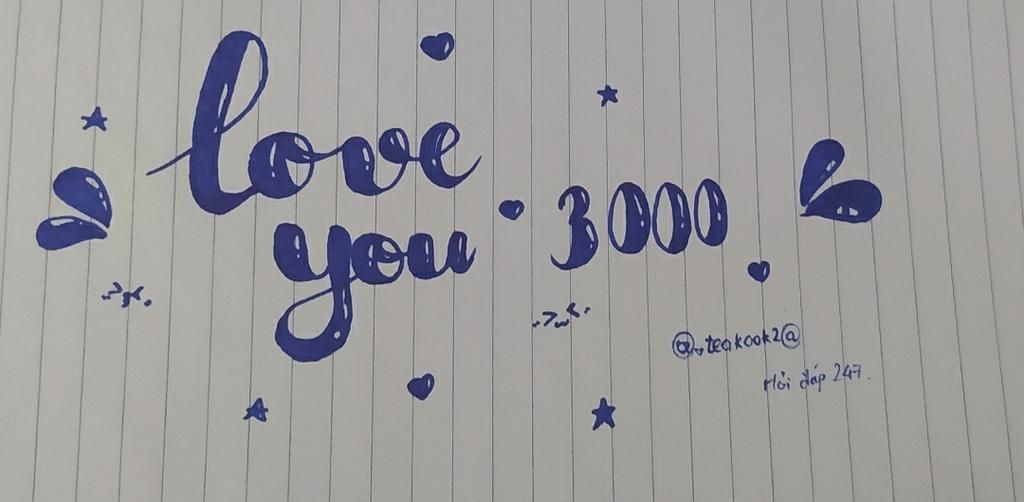 love
you 3000
.>з<.
.>w<.
@.teakook2@
Hỏi đáp 247.